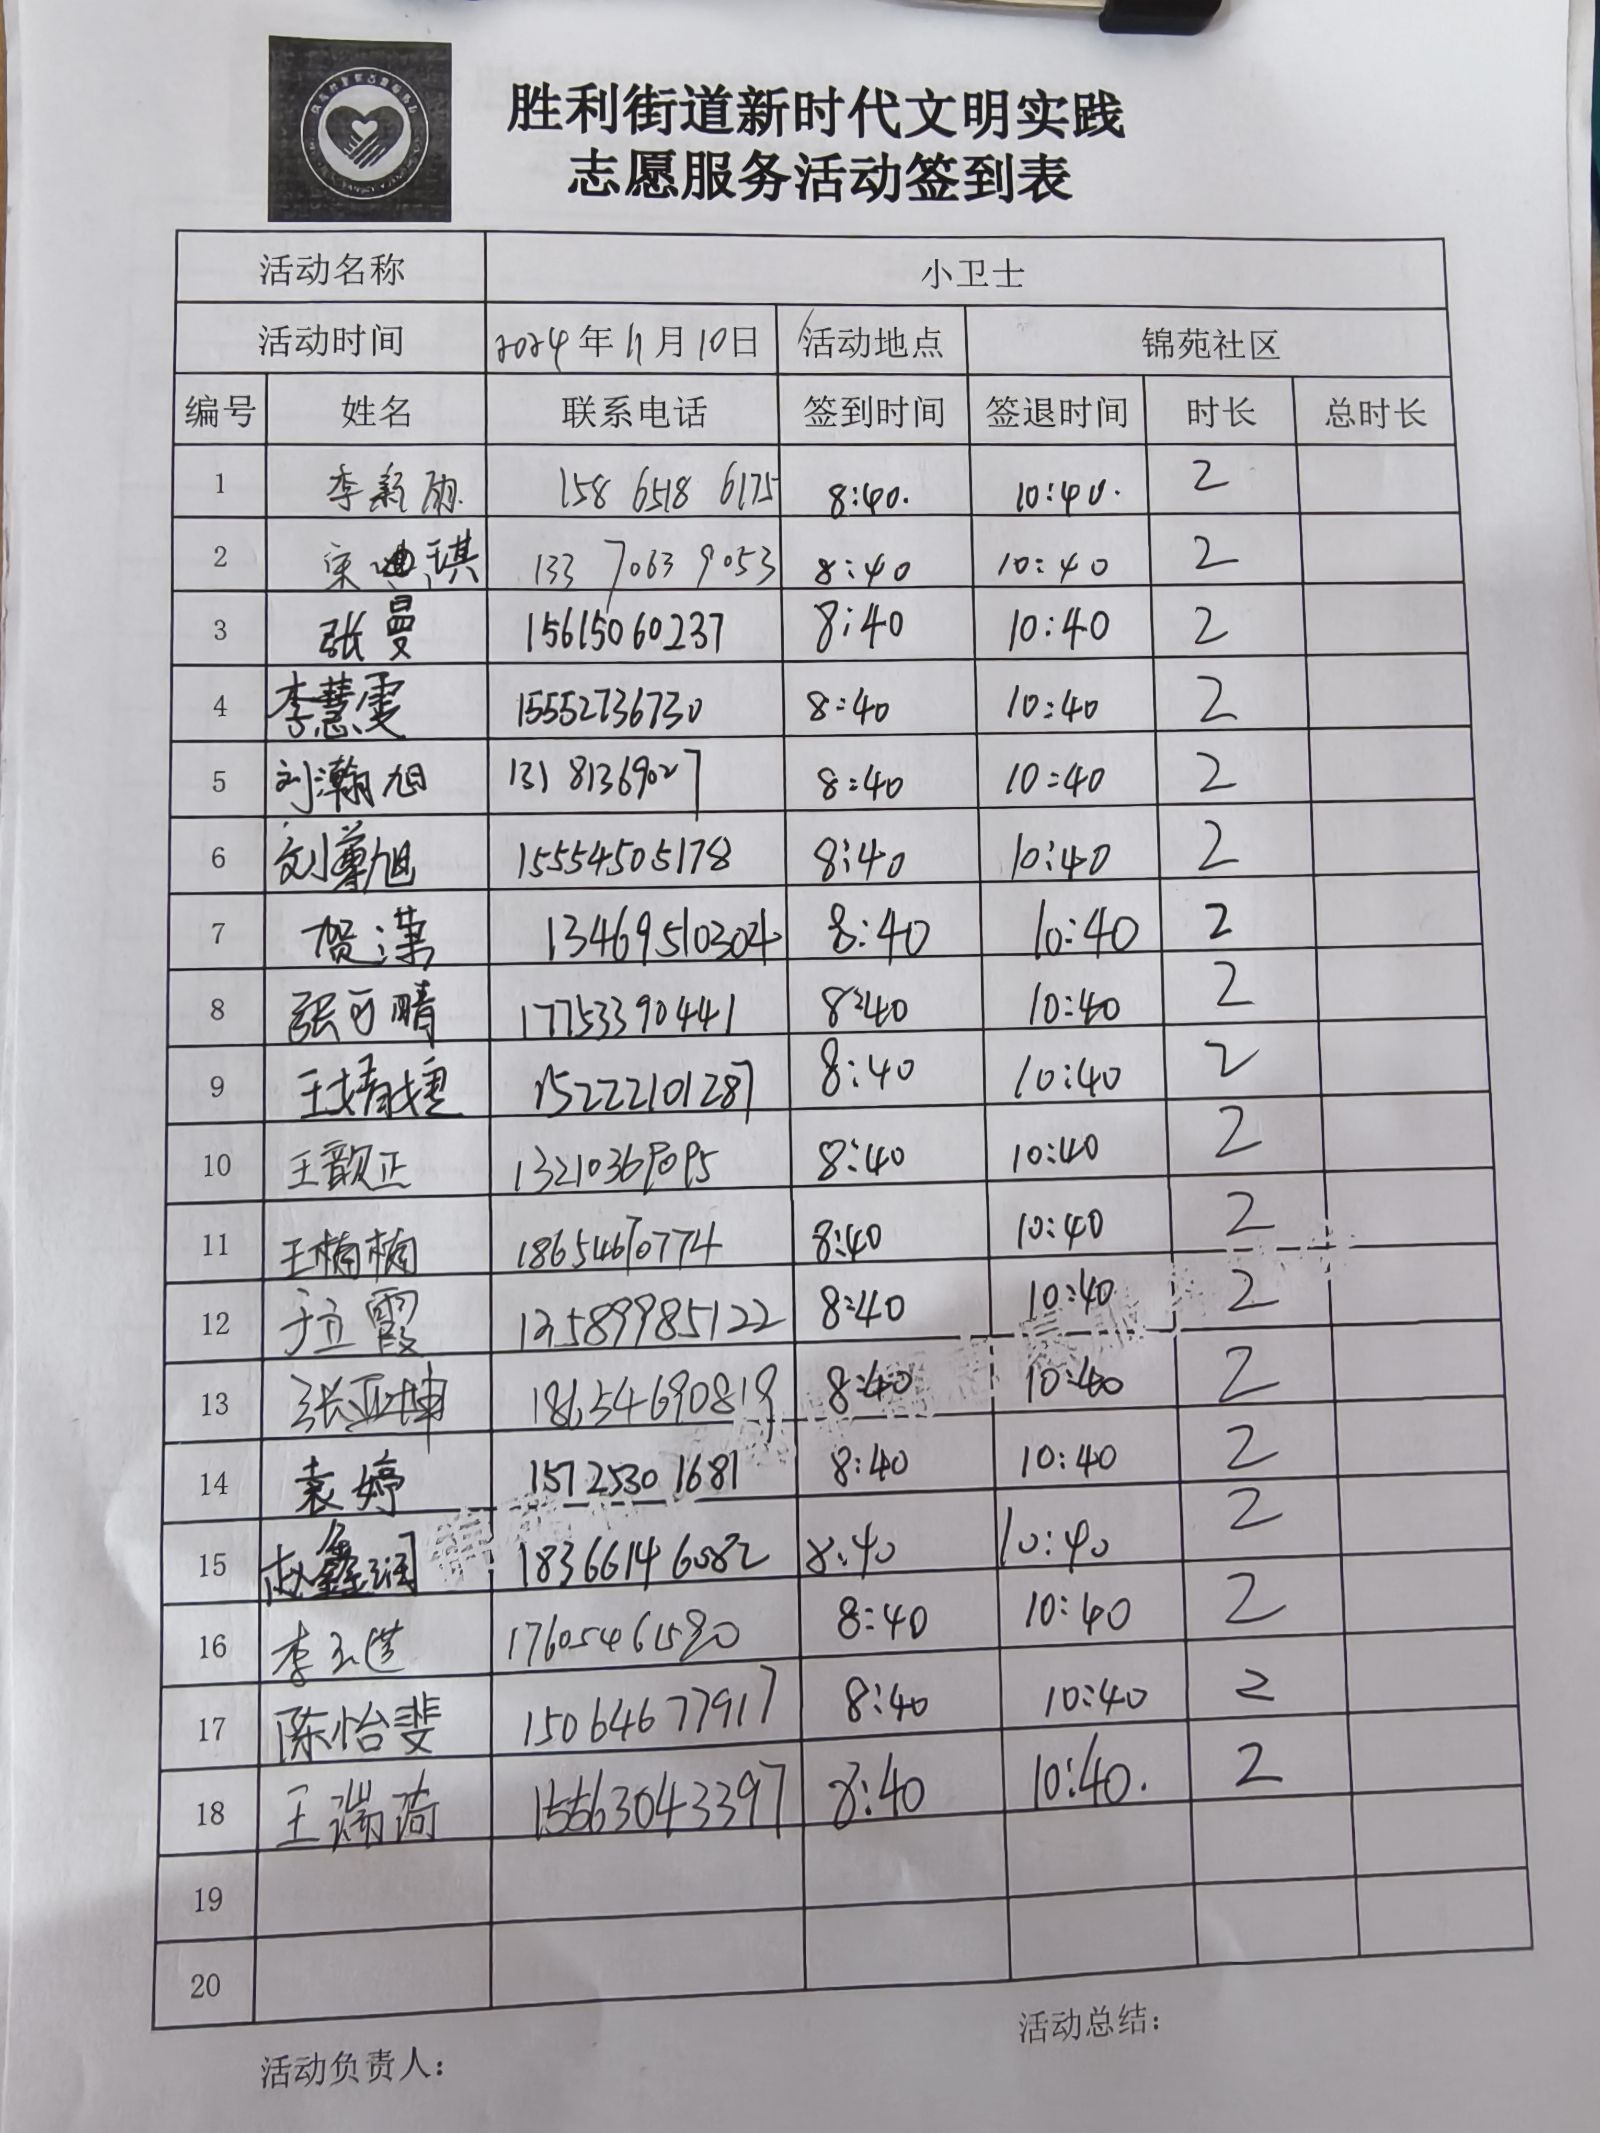 胜利街道新时代文明实践
志愿服务活动签到表
活动名称 小卫士
活动时间 2024年11月10日 活动地点 锦苑社区
编号 姓名 联系电话 签到时间 签退时间 时长 总时长
1 李新丽 158 6518 6175 8:40. 10:40. 2
2 宋迪琪 133 7063 9053 8:40 10:40 2
3 张曼 15615060237 8:40 10:40 2
4 李慧雯 15552736730 8:40 10:40 2
5 刘瀚旭 13181369027 8:40 10:40 2
6 刘尊旭 15554505178 8:40 10:40 2
7 贺潇 13469510304 8:40 10:40 2
8 张可晴 17753390441 8:40 10:40 2
9 王婧婕 15222101287 8:40 10:40 2
10 王歆正 13210369095 8:40 10:40 2
11 王楠楠 18654670774 8:40 10:40 2
12 于立霞 13589985122 8:40 10:40 2
13 张亚坤 18654690819 8:40 10:40 2
14 袁婷 15725301681 8:40 10:40 2
15 赵鑫润 18366146082 8:40 10:40 2
16 李 17605461580 8:40 10:40 2
17 陈怡斐 15064677917 8:40 10:40 2
18 王瑞琦 15563043397 8:40 10:40. 2
19
20
活动总结：
活动负责人：